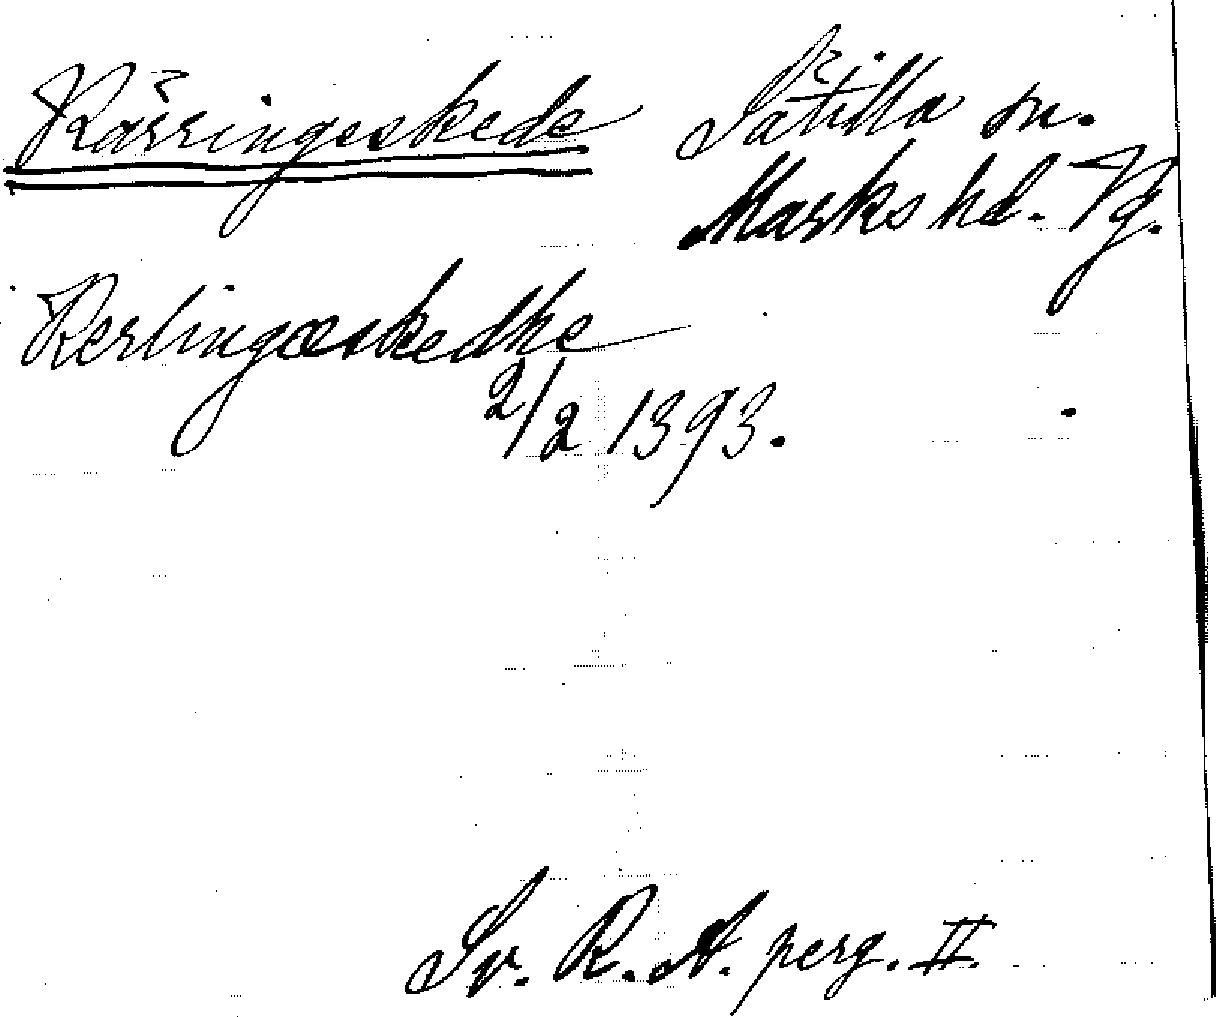 Kärringeskede Sätilla sn.
Marks hd. Vg.
Kerlingæskedhe
2/2 1393.
Sv. R. A. perg. II.